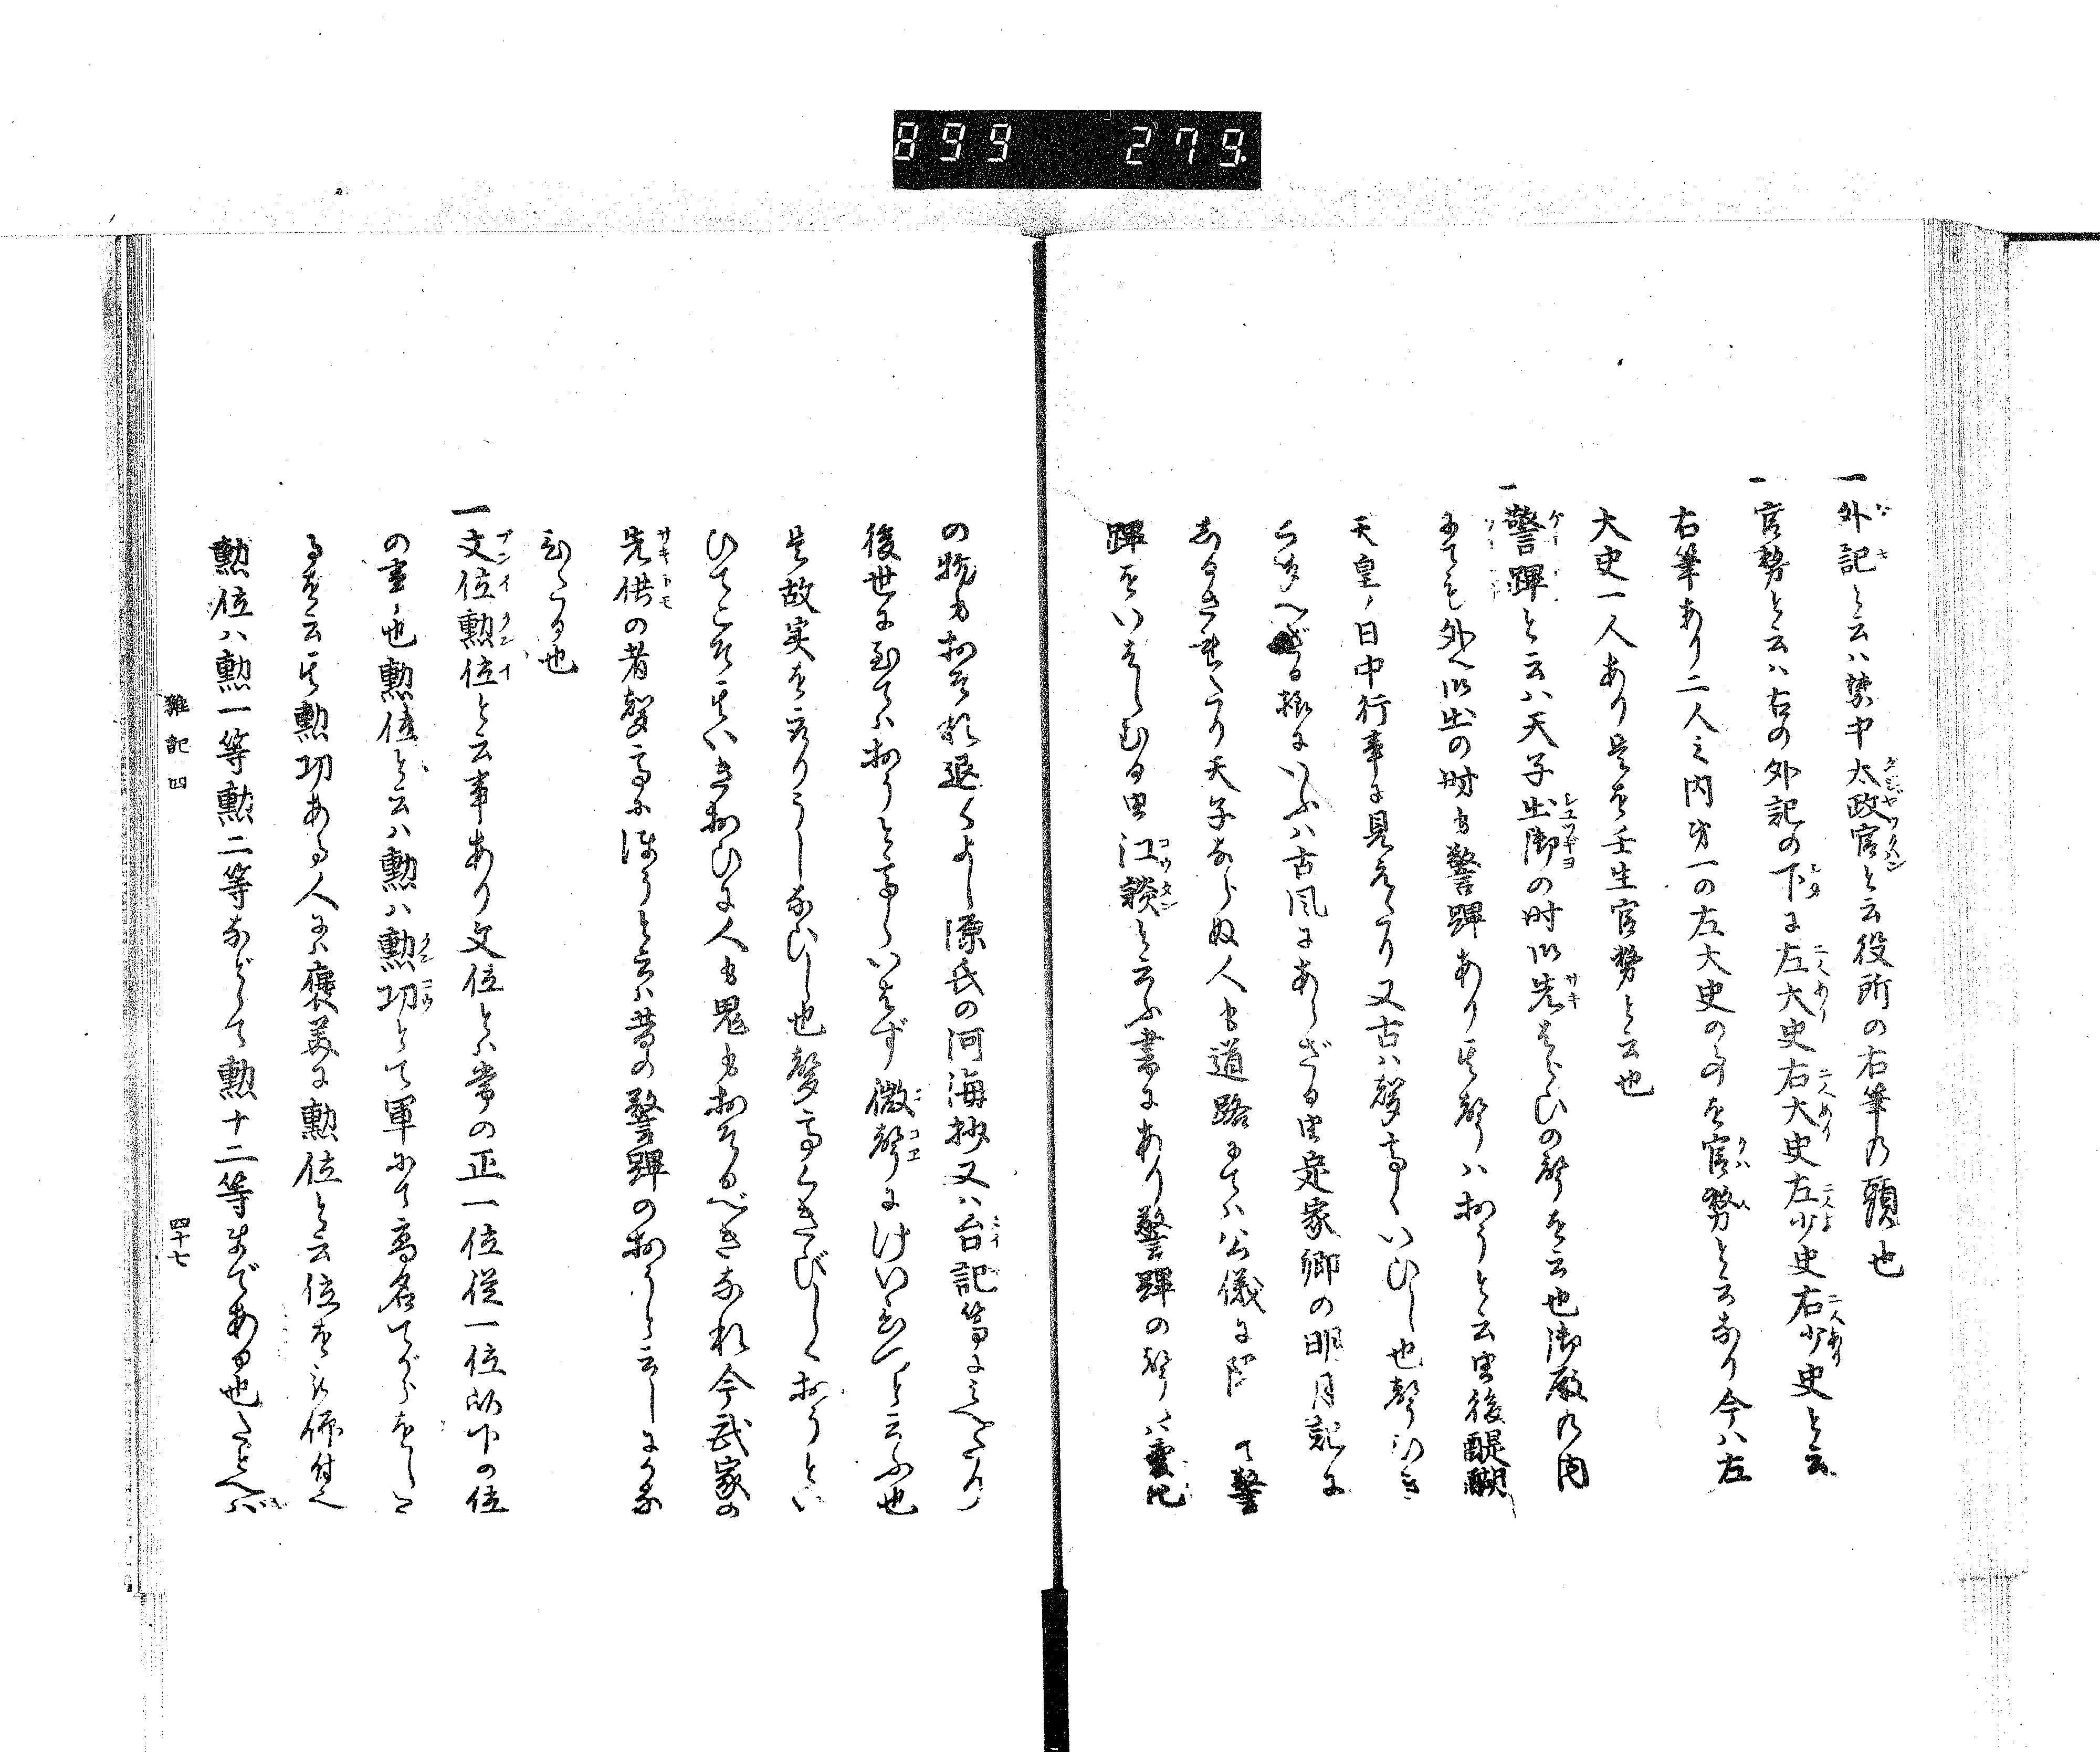 899 279.
一外記と云ハ禁中太政官と云役所の右筆の頭也
一官務と云ハ右の外記の下に左大史右大史左少史右少史と云
右筆あり二人之内第一の左大史の事を官務と云なり今ハ左
大史一人あり是を壬生官務と云也
一警蹕と云ハ天子出御の時御先をはらひの聲を云也御殿の内
にても外へ御出の時も警蹕あり其聲ハおうと云由後醍醐
天皇ノ日中行事に見えたり又古ハ聲高くいひし也聲ひき
くきへざる様にいふハ古風にあらざる由定家卿の明月記に
しるされたり天子ならぬ人も道路にてハ公儀に て警
蹕をいはしむる由江談と云ふ書にあり警蹕の聲は
の物もおそれ退くよし源氏の河海抄又ハ台記等にみへたり
後世に至てハおうと高くいはず微聲にけいひつと云ふ也
是故実をうしなひし也聲高くきびしくおうとい
ひてこそ其いきおひに人も鬼もおそるべきなれ今武家の
先供の者聲高に拂うと云ハ昔の警蹕のおうと云しにかな
ひたる也
一文位勲位と云事あり文位とハ常の正一位従一位以下の位
の事也勲位と云ハ勲ハ勲功とて軍にて高名てがらをした
るを云其勲功ある人にハ褒美に勲位と云位を被仰付
勲位ハ勲一等勲二等などとて勲十二等まである也たとへバ
雜記四 四十七